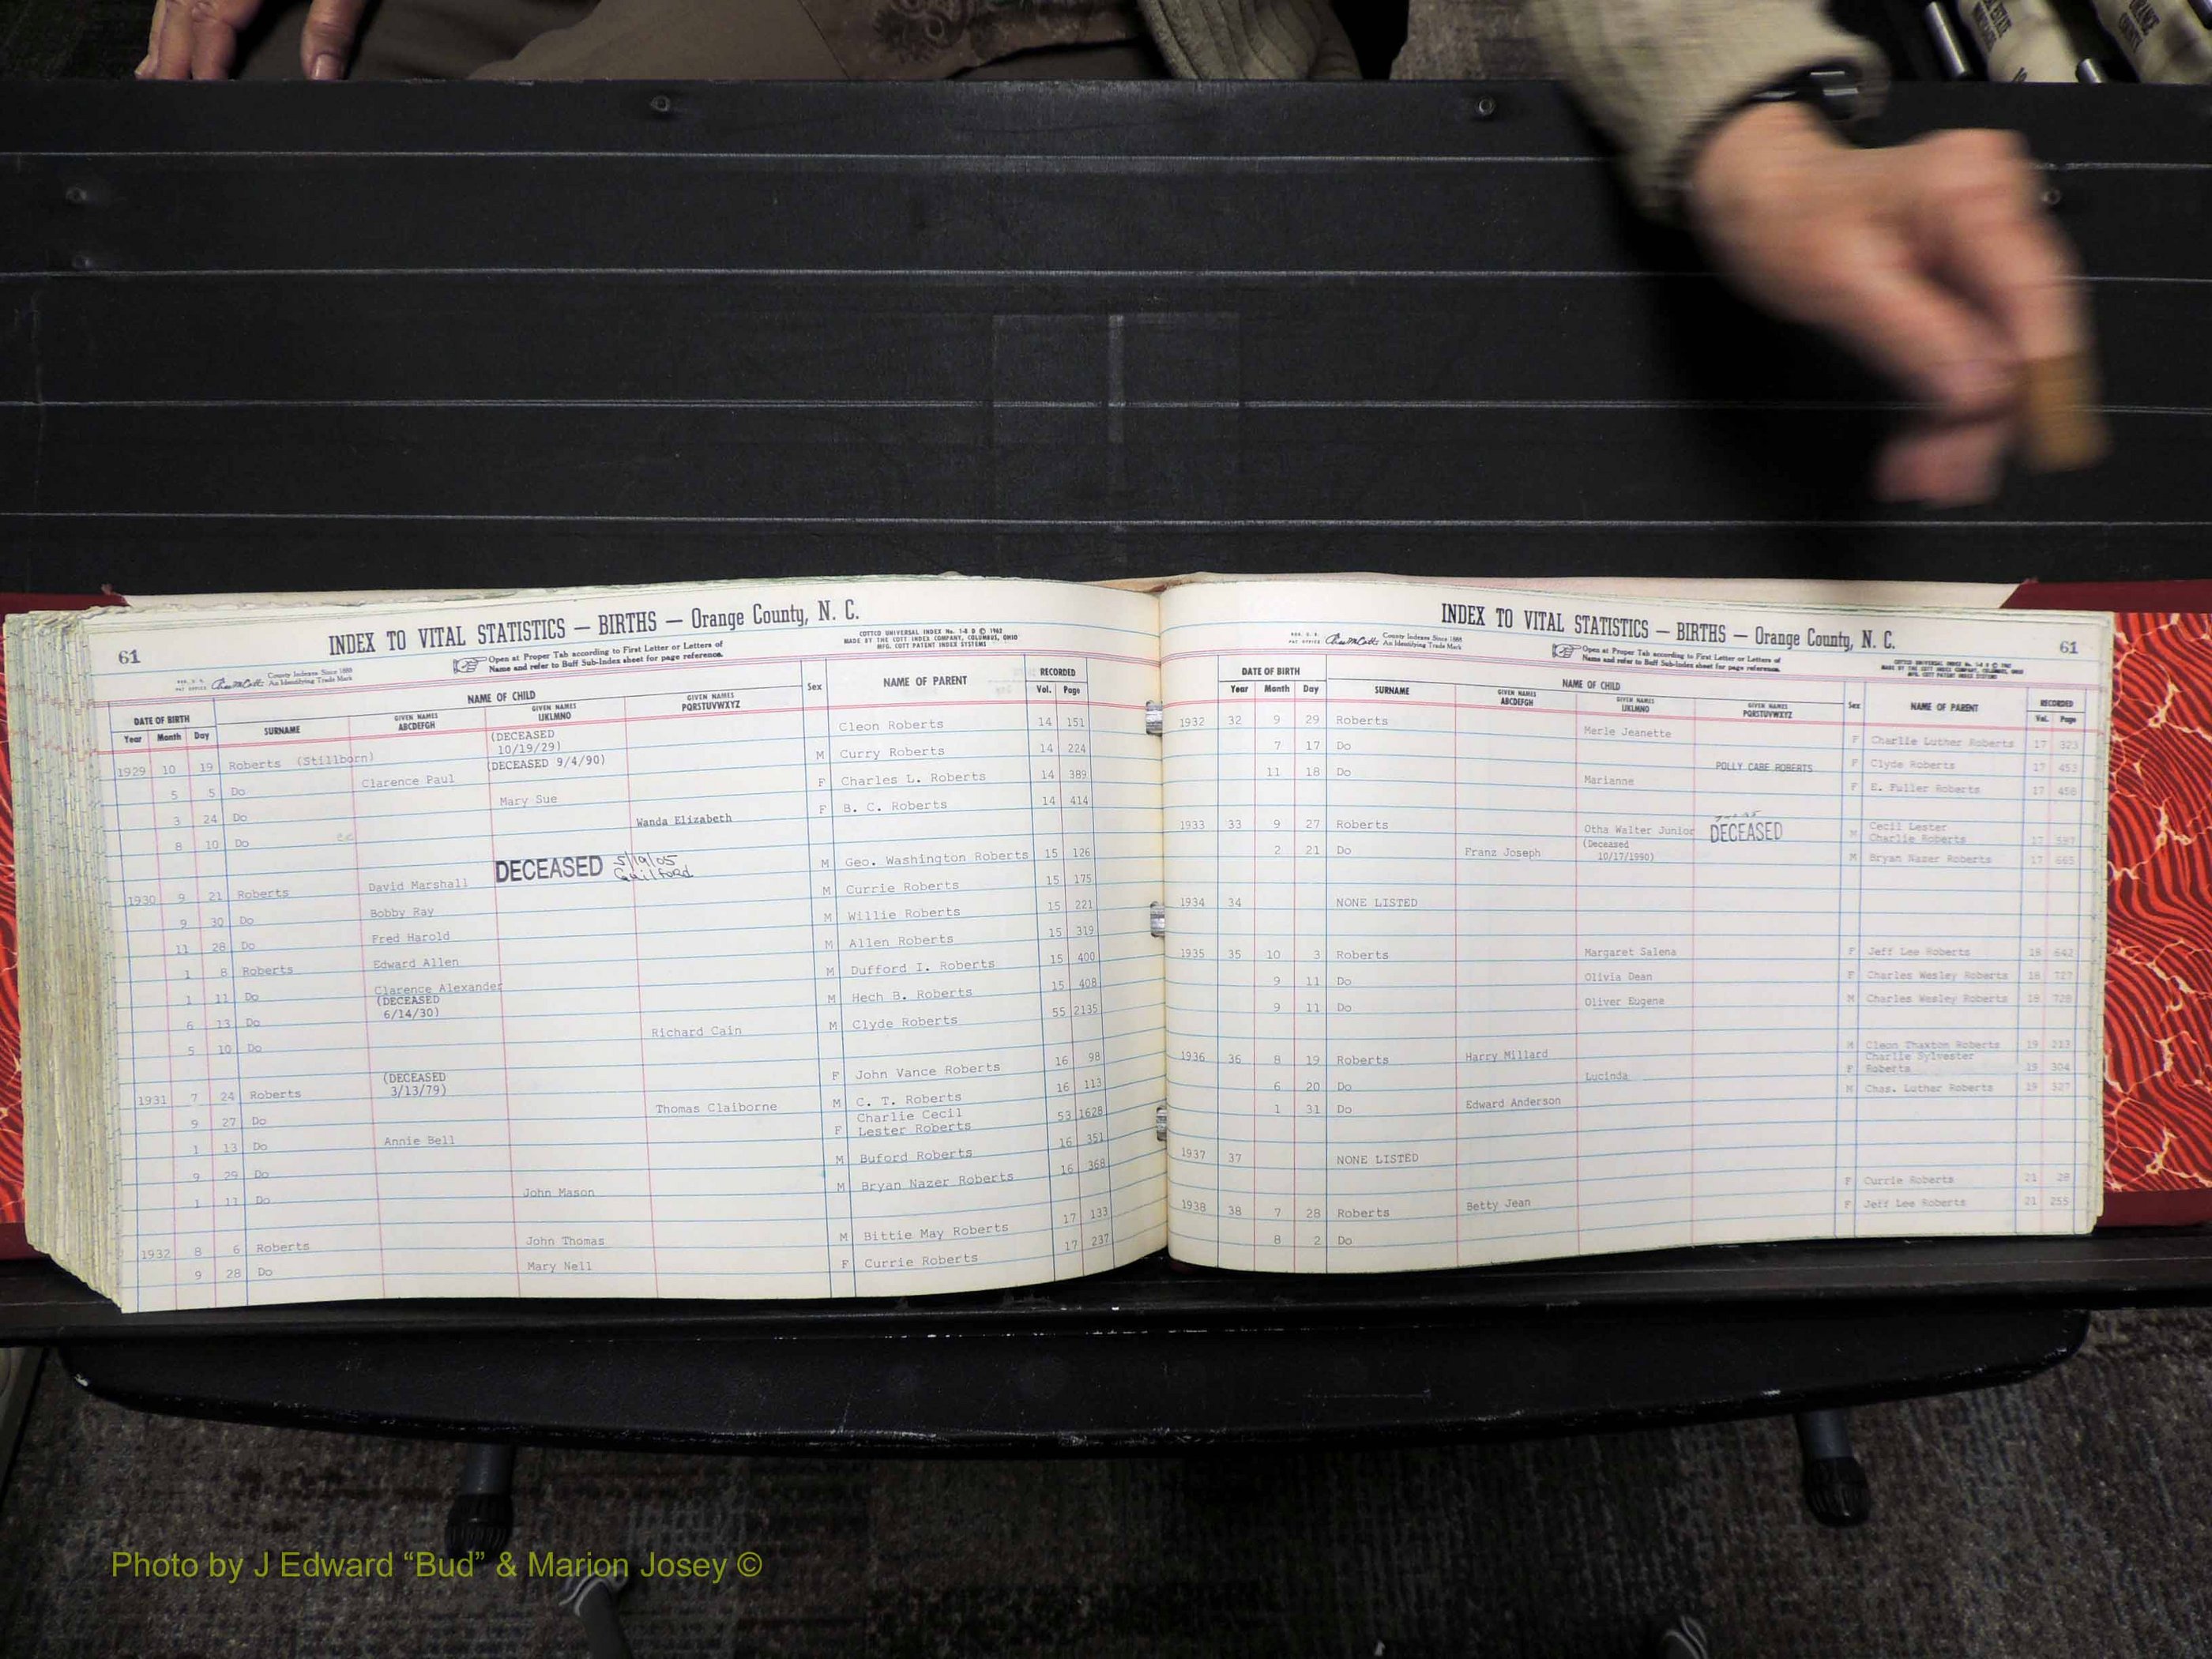 61
INDEX TO VITAL STATISTICS — BIRTHS — Orange County, N. C.
COTTCO UNIVERSAL INDEX No. 1-8 D © 1962
MADE BY THE COTT INDEX COMPANY, COLUMBUS, OHIO
MFG. COTT PATENT INDEX SYSTEMS
County Indexes Since 1888
An Identifying Trade Mark
Open at Proper Tab according to First Letter or Letters of
Name and refer to Buff Sub-Index sheet for page reference.
DATE OF BIRTH NAME OF CHILD Sex NAME OF PARENT RECORDED
Year Month Day SURNAME GIVEN NAMES ABCDEFGH GIVEN NAMES IJKLMNO GIVEN NAMES PQRSTUVWXYZ Vol. Page
(DECEASED
10/19/29)
1929 10 19 Roberts (Stillborn) Cleon Roberts 14 151
(DECEASED 9/4/90)
5 5 Do Clarence Paul M Curry Roberts 14 224
3 24 Do Mary Sue F Charles L. Roberts 14 389
8 10 Do Wanda Elizabeth F B. C. Roberts 14 414
DECEASED 5/19/05
Guilford
1930 9 21 Roberts David Marshall M Geo. Washington Roberts 15 126
9 30 Do Bobby Ray M Currie Roberts 15 175
11 28 Do Fred Harold M Willie Roberts 15 221
1 8 Roberts Edward Allen M Allen Roberts 15 319
1 11 Do Clarence Alexander M Dufford I. Roberts 15 400
(DECEASED
6/14/30)
6 13 Do M Hech B. Roberts 15 408
5 10 Do Richard Cain M Clyde Roberts 55 2135
(DECEASED
3/13/79)
1931 7 24 Roberts F John Vance Roberts 16 98
9 27 Do Thomas Claiborne M C. T. Roberts 16 113
1 13 Do Annie Bell F Charlie Cecil
Lester Roberts 53 1628
9 29 Do M Buford Roberts 16 351
1 11 Do John Mason M Bryan Nazer Roberts 16 368
1932 8 6 Roberts John Thomas M Bittie May Roberts 17 133
9 28 Do Mary Nell F Currie Roberts 17 237
INDEX TO VITAL STATISTICS — BIRTHS — Orange County, N. C.
61
County Indexes Since 1888
An Identifying Trade Mark
Open at Proper Tab according to First Letter or Letters of
Name and refer to Buff Sub-Index sheet for page reference.
DATE OF BIRTH NAME OF CHILD Sex NAME OF PARENT RECORDED
Year Month Day SURNAME GIVEN NAMES ABCDEFGH GIVEN NAMES IJKLMNO GIVEN NAMES PQRSTUVWXYZ Vol. Page
1932 32 9 29 Roberts Merle Jeanette F Charlie Luther Roberts 17 323
7 17 Do POLLY CABE ROBERTS F Clyde Roberts 17 453
11 18 Do Marianne F E. Fuller Roberts 17 458
1933 33 9 27 Roberts Otha Walter Junior DECEASED M Cecil Lester
Charlie Roberts 17 587
2 21 Do Franz Joseph (Deceased
10/17/1990) M Bryan Nazer Roberts 17 665
1934 34 NONE LISTED
1935 35 10 3 Roberts Margaret Salena F Jeff Lee Roberts 18 642
9 11 Do Olivia Dean F Charles Wesley Roberts 18 727
9 11 Do Oliver Eugene M Charles Wesley Roberts 18 728
1936 36 8 19 Roberts Harry Millard M Cleon Thaxton Roberts 19 213
6 20 Do Lucinda F Charlie Sylvester
Roberts 19 304
1 31 Do Edward Anderson M Chas. Luther Roberts 19 327
1937 37 NONE LISTED
1938 38 7 28 Roberts Betty Jean F Currie Roberts 21 28
8 2 Do F Jeff Lee Roberts 21 255
Photo by J Edward “Bud” & Marion Josey ©